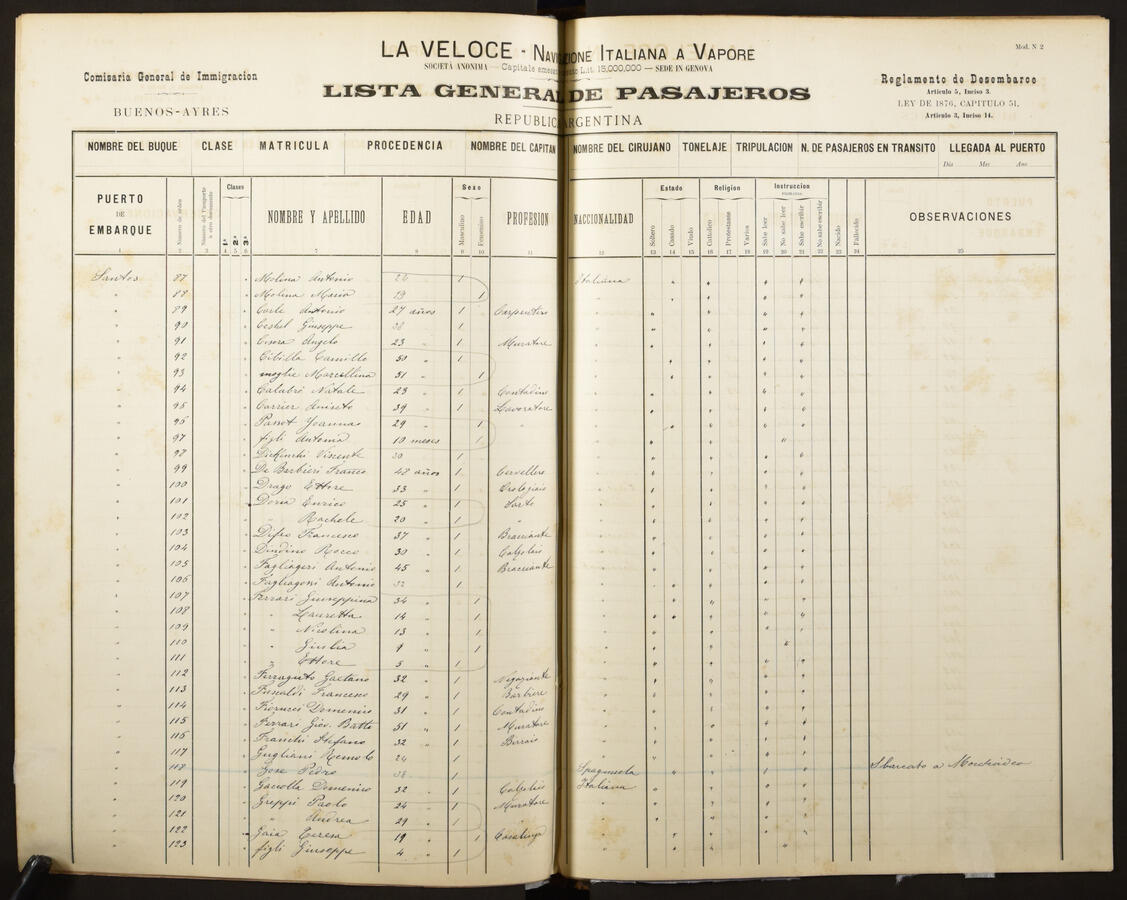 LA VELOCE - NAVIGAZIONE ITALIANA A VAPORE
SOCIETÀ ANONIMA — Capitale emesso Lit. 15,000,000 — SEDE IN GENOVA
Mod. N 2
Comisaria General de Immigracion
BUENOS-AYRES
LISTA GENERAL DE PASAJEROS
REPUBLICA ARGENTINA
Reglamento de Desembarco
Articulo 5, Inciso 3.
LEY DE 1876, CAPITULO 51.
Articulo 3, Inciso 14.
NOMBRE DEL BUQUE CLASE MATRICULA PROCEDENCIA NOMBRE DEL CAPITAN NOMBRE DEL CIRUJANO TONELAJE TRIPULACION N. DE PASAJEROS EN TRANSITO LLEGADA AL PUERTO
Dia Mes Ano
PUERTO DE EMBARQUE Número de orden Clases 1ª 2ª 3ª NOMBRE Y APELLIDO EDAD Sexo Masculino Femenino PROFESION NACCIONALIDAD Estado Soltero Casado Viudo Religion Catolico Protestante Varios Instruccion Sabe leer No sabe leer Sabe escribir No sabe escribir Nacido Fallecido OBSERVACIONES
Santos 87 " Molina Antonio 22 1 Italiana
" 88 " Molina Maria 19 1 "
" 89 " Corte Antonio 27 años 1 Carpentiere "
" 90 " Giuseppe 1 "
" 91 " Angelo 23 " 1 Muratore "
" 92 " Cibilla Camillo 50 " 1 "
" 93 " moglie Marcellina 51 " 1 "
" 94 " Calabrò Natale 23 " 1 Contadino "
" 95 " Carrier Aniceto 39 " 1 Lavoratore "
" 96 " Joanna 29 " 1 " "
" 97 " figli Antonia 10 meses 1 "
" 98 " Vincente 30 1 "
" 99 " De Barbieri Franco 42 años 1 "
" 100 " Drago Ettore 33 " 1 "
" 101 " Doria Enrico 25 " 1 Sarto "
" 102 " " Rachele 20 " 1 " "
" 103 " Francesco 37 " 1 Bracciante "
" 104 " Dindino Rocco 30 " 1 Calzolaio "
" 105 " Antonio 45 " 1 Bracciante "
" 106 " Antonio 1 "
" 107 " Ferrari Giuseppina 34 " 1 "
" 108 " " Lauretta 14 " 1 "
" 109 " " Nicolina 13 " 1 "
" 110 " " Giulia 9 " 1 "
" 111 " " Ettore 5 " 1 "
" 112 " Ferraguto Gaetano 32 " 1 Negoziante "
" 113 " Francesco 29 " 1 Barbiere "
" 114 " Fiorucci Domenico 31 " 1 Contadino "
" 115 " Ferrari Giov. Batta 51 " 1 Muratore "
" 116 " Franchi Stefano 32 " 1 Birraio "
" 117 " Gugliani Remolo 24 1 "
" 118 " Jose Pedro 1 Spagnuola Sbarcato a Montevideo
" 119 " Domenico 32 " 1 Calzolaio Italiana
" 120 " Greppi Paolo 24 " 1 Muratore "
" 121 " " Andrea 29 " 1 " "
" 122 " Gaia Teresa 19 " 1 Casalinga "
" 123 " figli Giuseppe 4 " 1 "